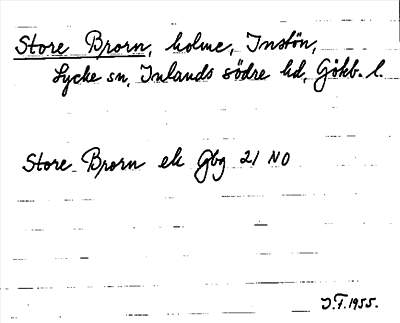 Store Brorn, holme, Instön,
Lycke sn, Inlands södre hd, Göhb. l.
Store Brorn ek Gbg 21 NO
J.F. 1955.